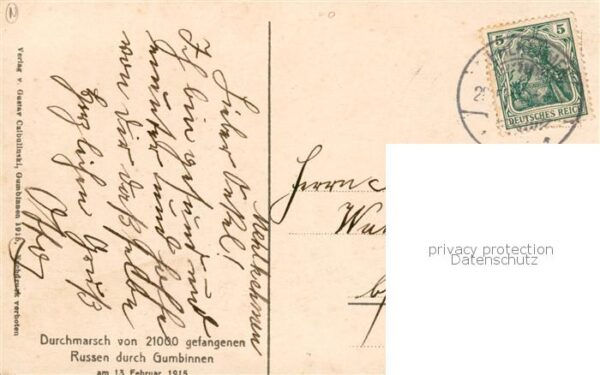 Malkehmen
Lieber Onkel!
Ich bin gesund und
munter und hoffe
von dir dasselbe
Herzlichen Gruß
Otto
Herrn
Wa
b
Verlag v. Gustav Caibulinski, Gumbinnen 1915. Nachdruck verboten
Durchmarsch von 21000 gefangenen
Russen durch Gumbinnen
am 13 Februar 1915
5
5
DEUTSCHES REICH
privacy protection
Datenschutz
N